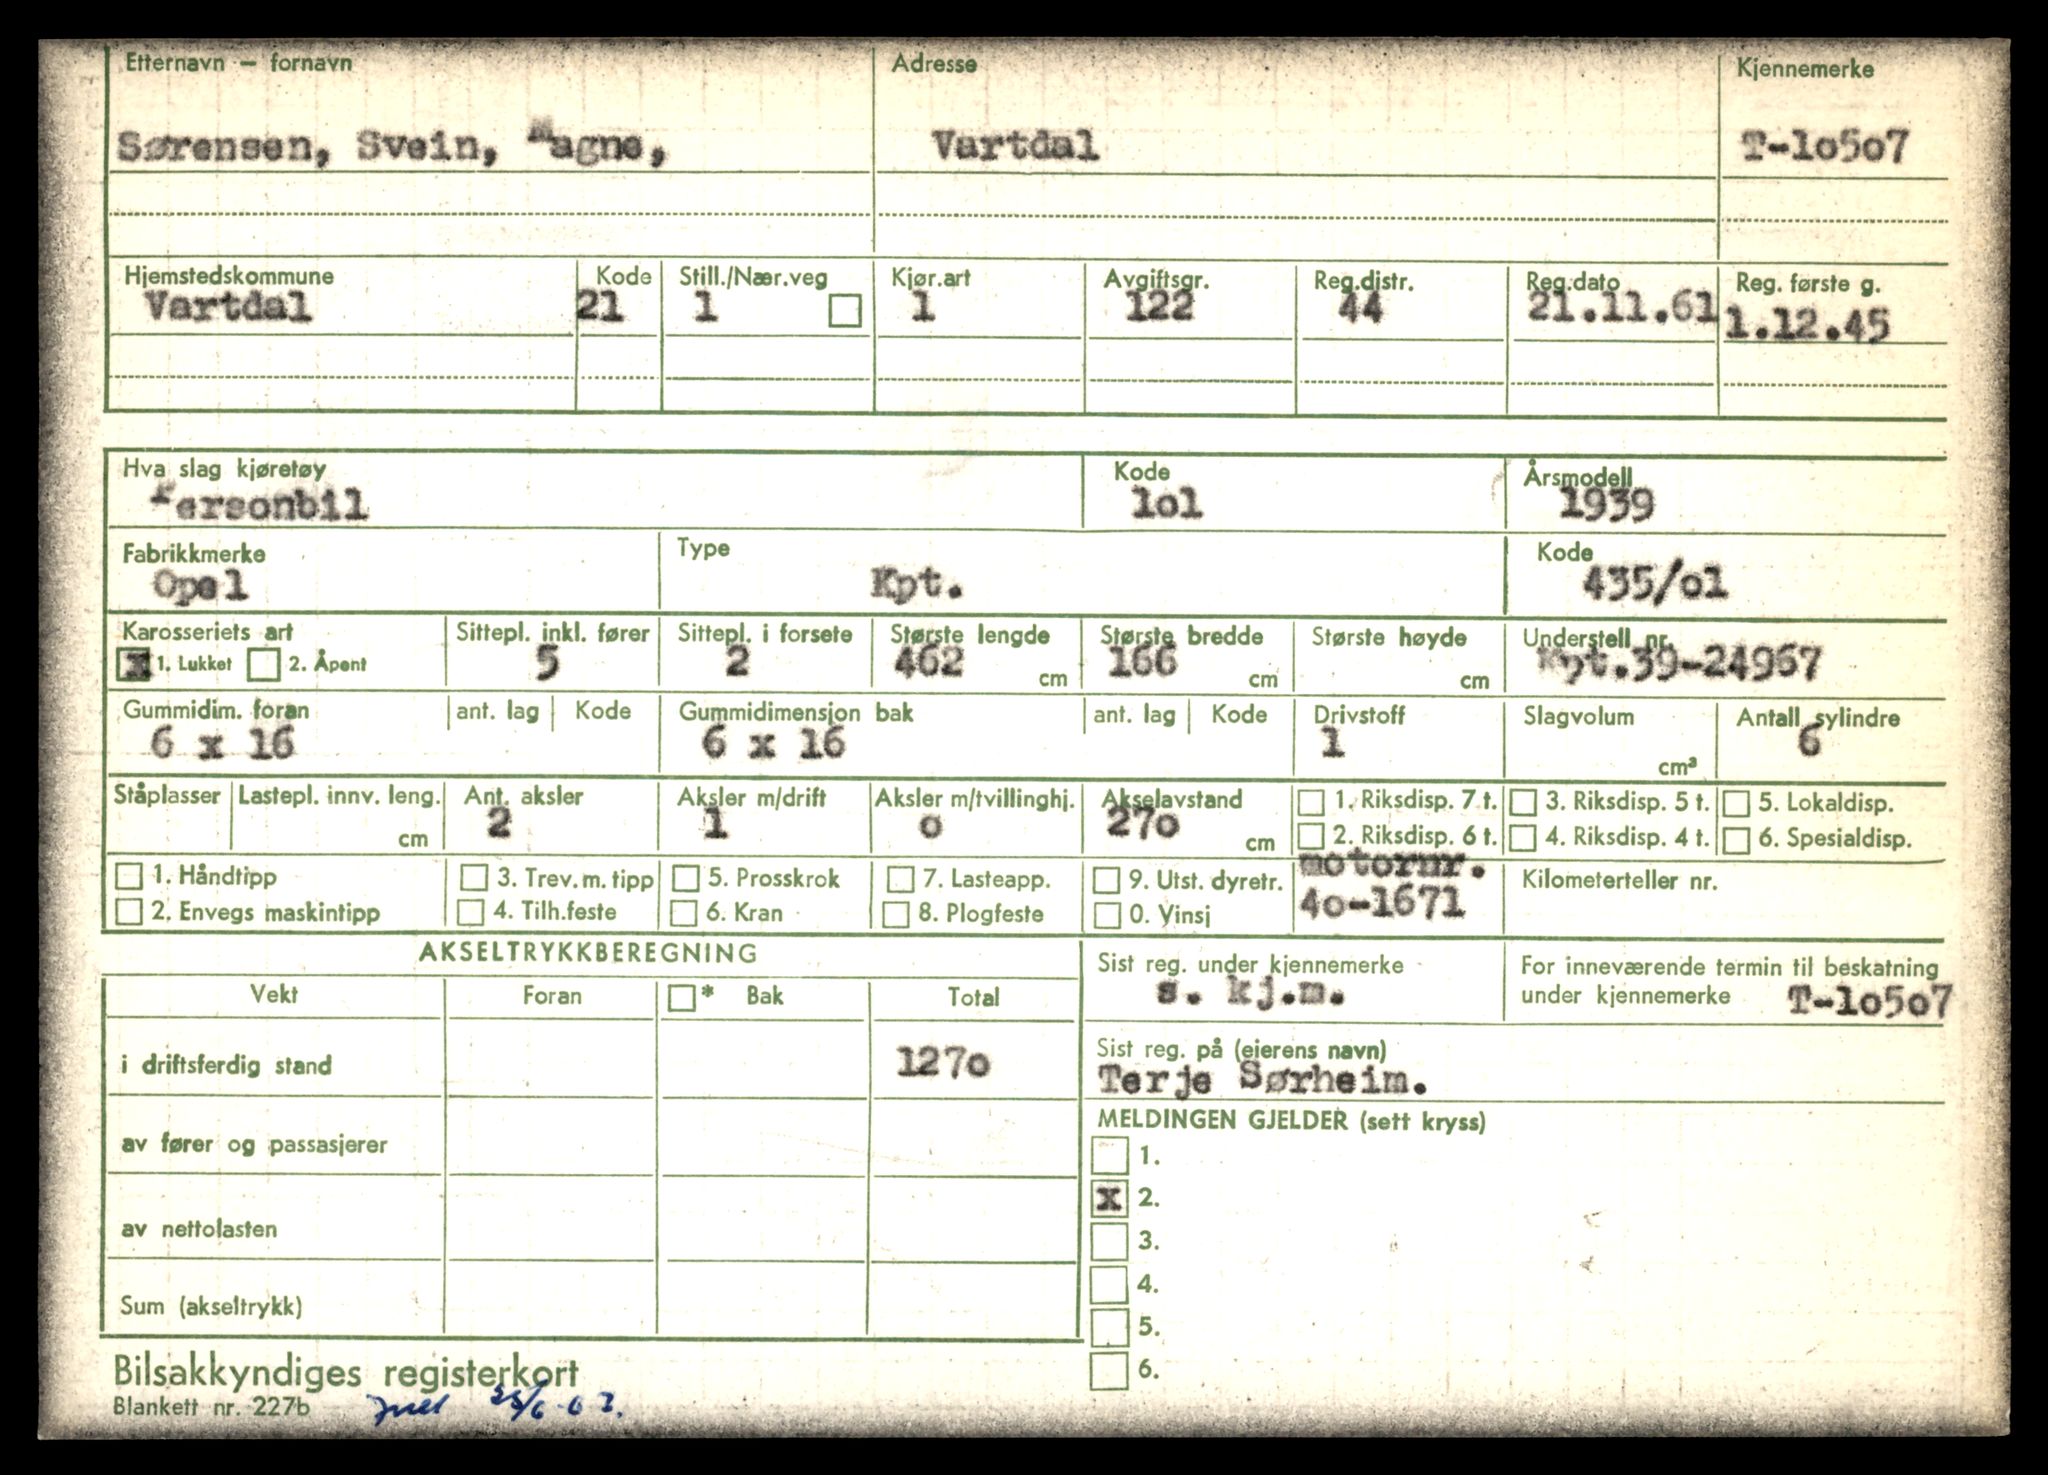 Etternavn – fornavn Adresse Kjennemerke
Sørensen, Svein, Magne, Vartdal T-lo5o7
Hjemstedskommune Kode Still./Nær.veg Kjør.art Avgiftsgr. Reg.distr. Reg.dato Reg. første g.
Vartdal 21 1 1 122 44 21.11.61 1.12.45
Hva slag kjøretøy Kode Årsmodell
Personbil lol 1939
Fabrikkmerke Type Kode
Opel Kpt. 435/o1
Karosseriets art Sittepl. inkl. fører Sittepl. i forsete Største lengde Største bredde Største høyde Understell nr.
x 1. Lukket 2. Åpent 5 2 462 cm 166 cm cm Kpt.39-24967
Gummidim. foran ant. lag Kode Gummidimensjon bak ant. lag Kode Drivstoff Slagvolum Antall sylindre
6 x 16 6 x 16 1 cm³ 6
Ståplasser Lastepl. innv. leng. Ant. aksler Aksler m/drift Aksler m/tvillinghj. Akselavstand 1. Riksdisp. 7 t. 3. Riksdisp. 5 t. 5. Lokaldisp.
cm 2 1 o 27o cm 2. Riksdisp. 6 t. 4. Riksdisp. 4 t. 6. Spesialdisp.
1. Håndtipp 3. Trev. m. tipp 5. Prosskrok 7. Lasteapp. 9. Utst. dyretr. motornr. Kilometerteller nr.
2. Envegs maskintipp 4. Tilh.feste 6. Kran 8. Plogfeste 0. Vinsj 4o-1671
AKSELTRYKKBEREGNING
Vekt Foran * Bak Total
i driftsferdig stand 127o
av fører og passasjerer
av nettolasten
Sum (akseltrykk)
Sist reg. under kjennemerke For inneværende termin til beskatning
s. kj.m. under kjennemerke T-lo5o7
Sist reg. på (eierens navn)
Terje Sørheim.
MELDINGEN GJELDER (sett kryss)
1.
x 2.
3.
4.
5.
6.
Bilsakkyndiges registerkort
Blankett nr. 227b